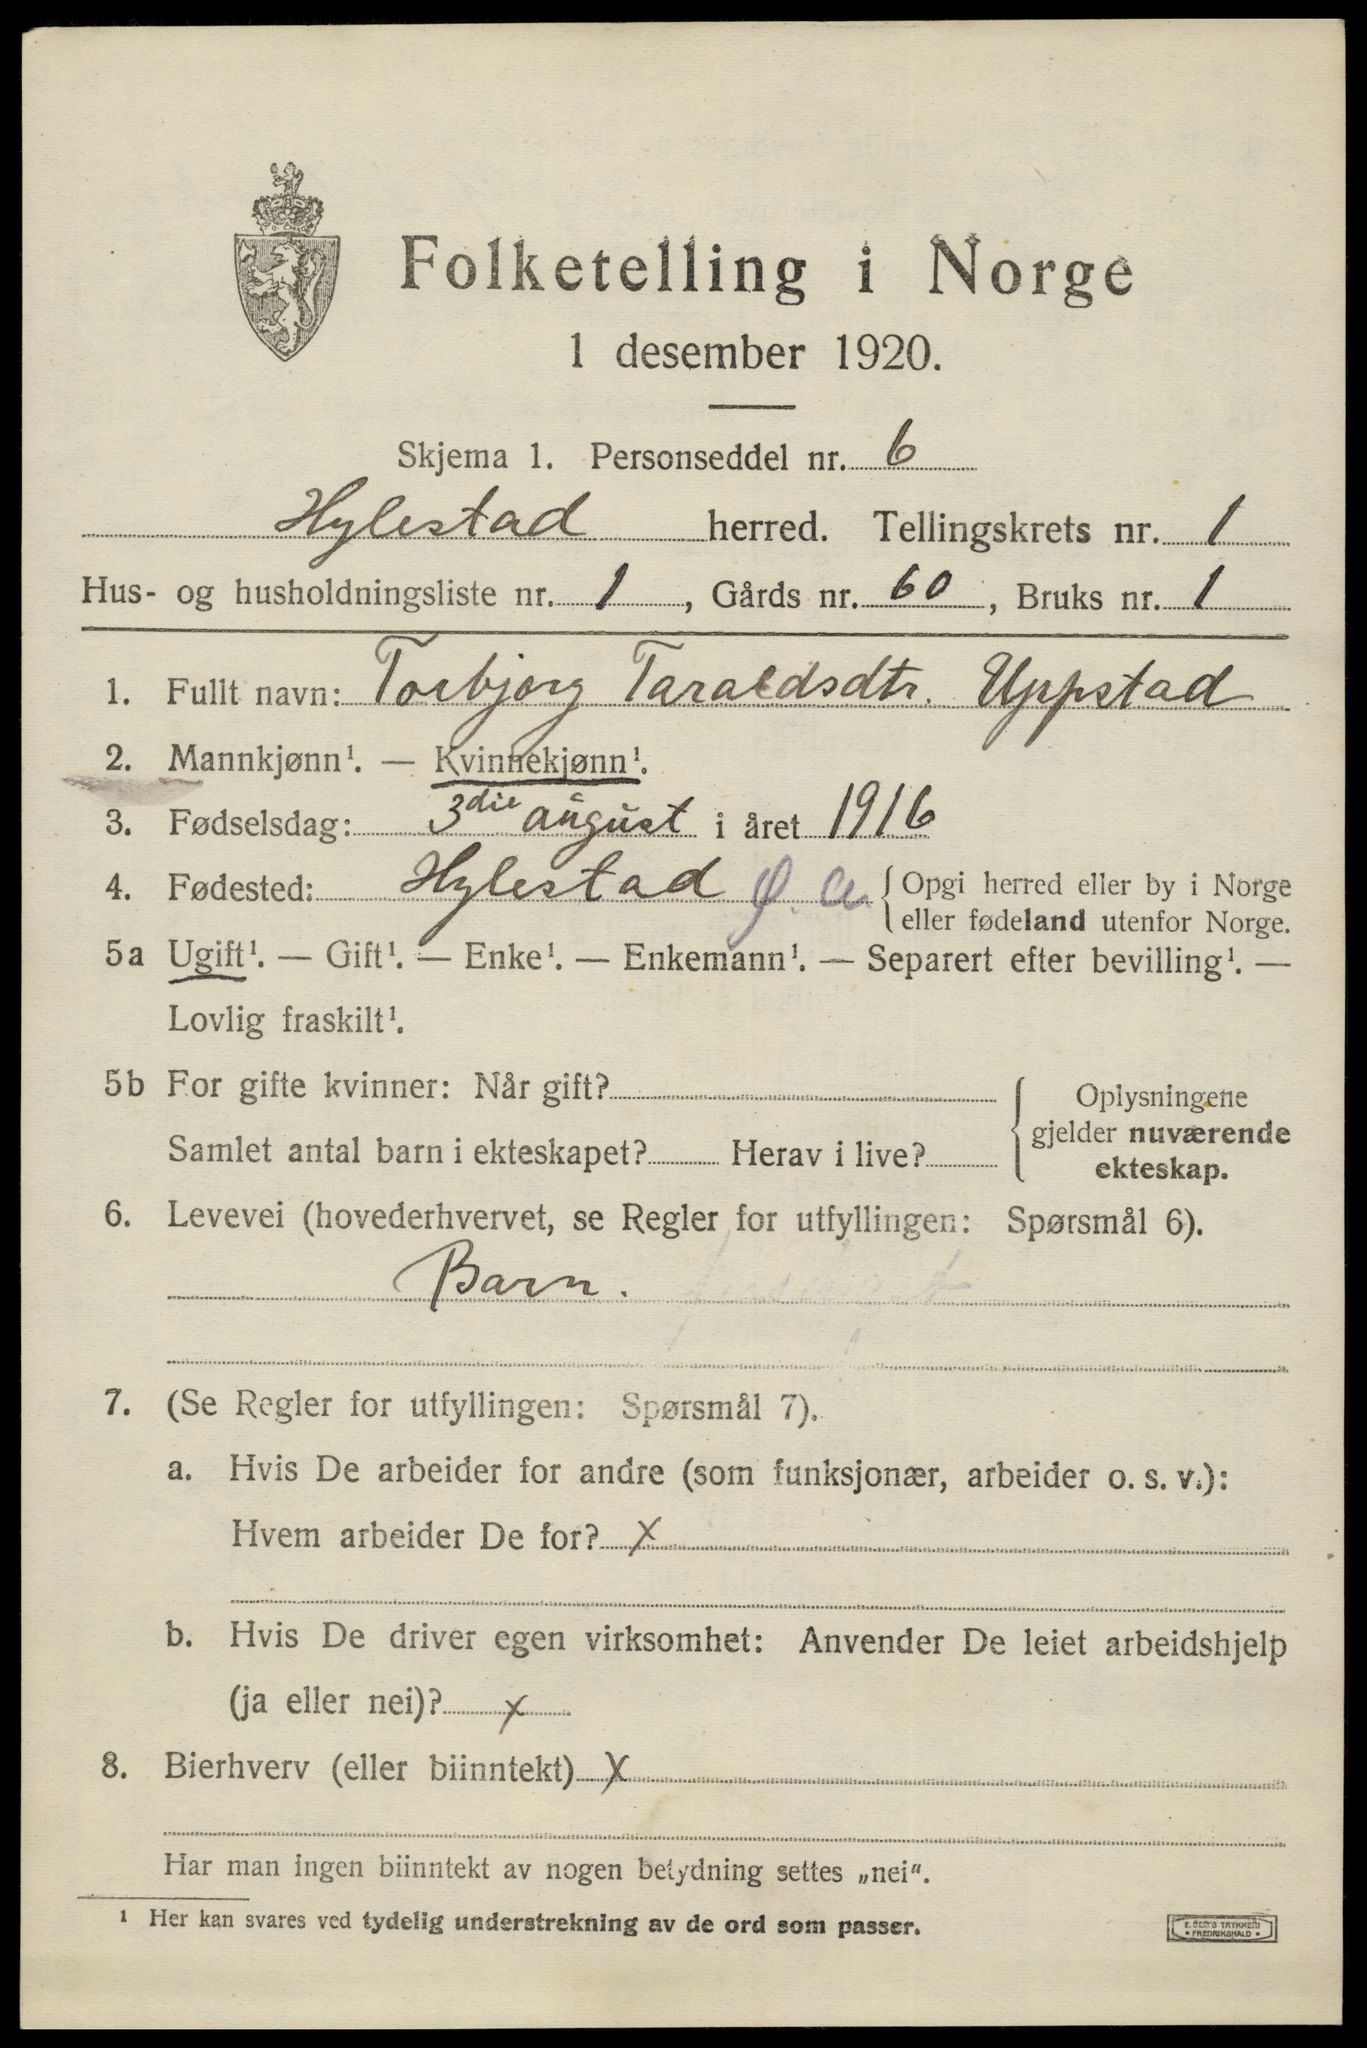 Folketelling i Norge
1 desember 1920.
Skjema 1. Personseddel nr. 6
Hylestad herred. Tellingskrets nr. 1
Hus- og husholdningsliste nr. 1, Gårds nr. 60, Bruks nr. 1
1. Fullt navn: Torbjørg Taraldsdtr. Uppstad
2. Mannkjønn¹. — Kvinnekjønn¹.
3. Fødselsdag: 3die august i året 1916
4. Fødested: Hylestad Ø. A. { Opgi herred eller by i Norge
eller fødeland utenfor Norge.
5a Ugift¹. — Gift¹. — Enke¹. — Enkemann¹. — Separert efter bevilling¹. —
Lovlig fraskilt¹.
5b For gifte kvinner: Når gift?
Samlet antal barn i ekteskapet? Herav i live?
{ Oplysningene
gjelder nuværende
ekteskap.
6. Levevei (hovederhvervet, se Regler for utfyllingen: Spørsmål 6).
Barn.
7. (Se Regler for utfyllingen: Spørsmål 7).
a. Hvis De arbeider for andre (som funksjonær, arbeider o. s. v.):
Hvem arbeider De for? x
b. Hvis De driver egen virksomhet: Anvender De leiet arbeidshjelp
(ja eller nei)? x
8. Bierhverv (eller biinntekt) x
Har man ingen biinntekt av nogen betydning settes „nei“.
¹ Her kan svares ved tydelig understrekning av de ord som passer.
TRYKKERI
FREDRIKSHALD